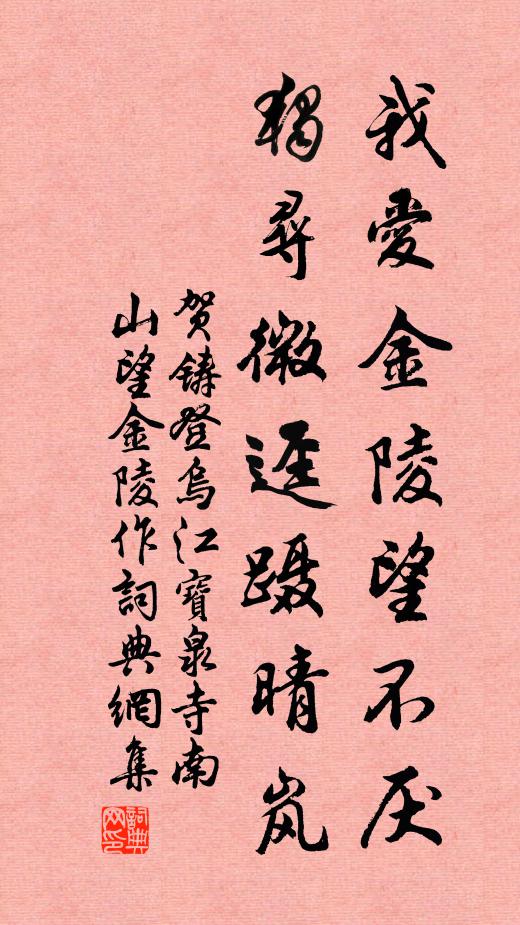 我愛金陵望不厌
獨尋微逕蹑晴岚
贺鑄登烏江寶泉寺南
山望金陵作詞典網集
詞典网印